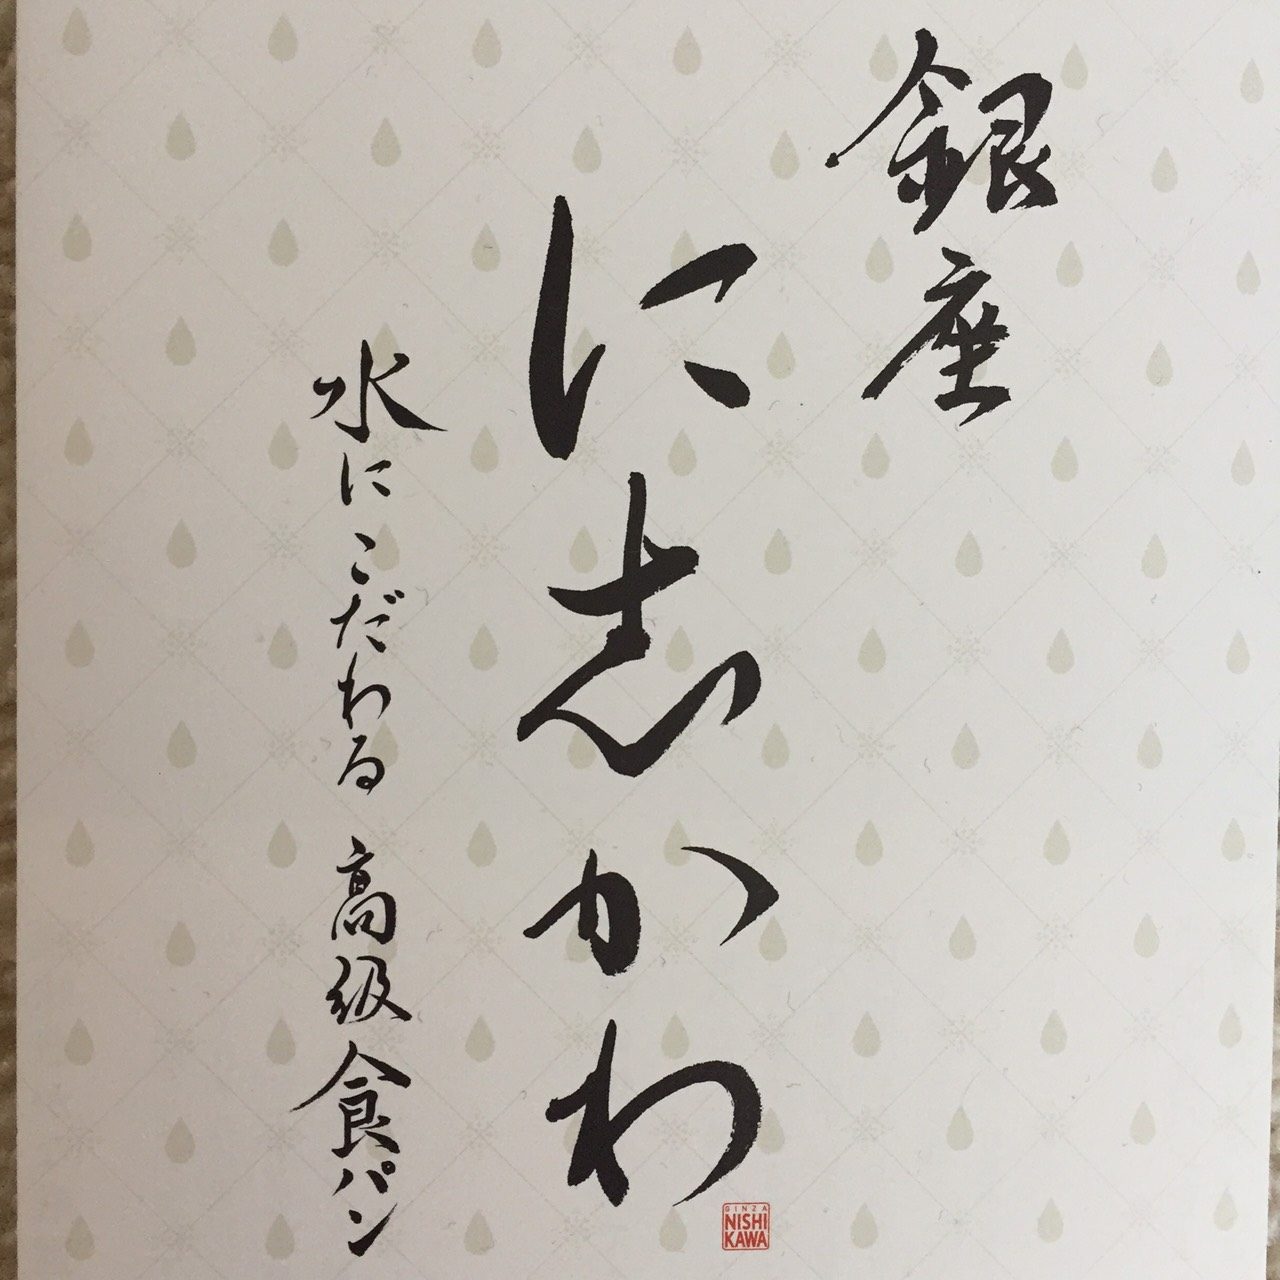 銀座
に志かわ
水にこだわる高級食パン
GINZA
NISHI
KAWA